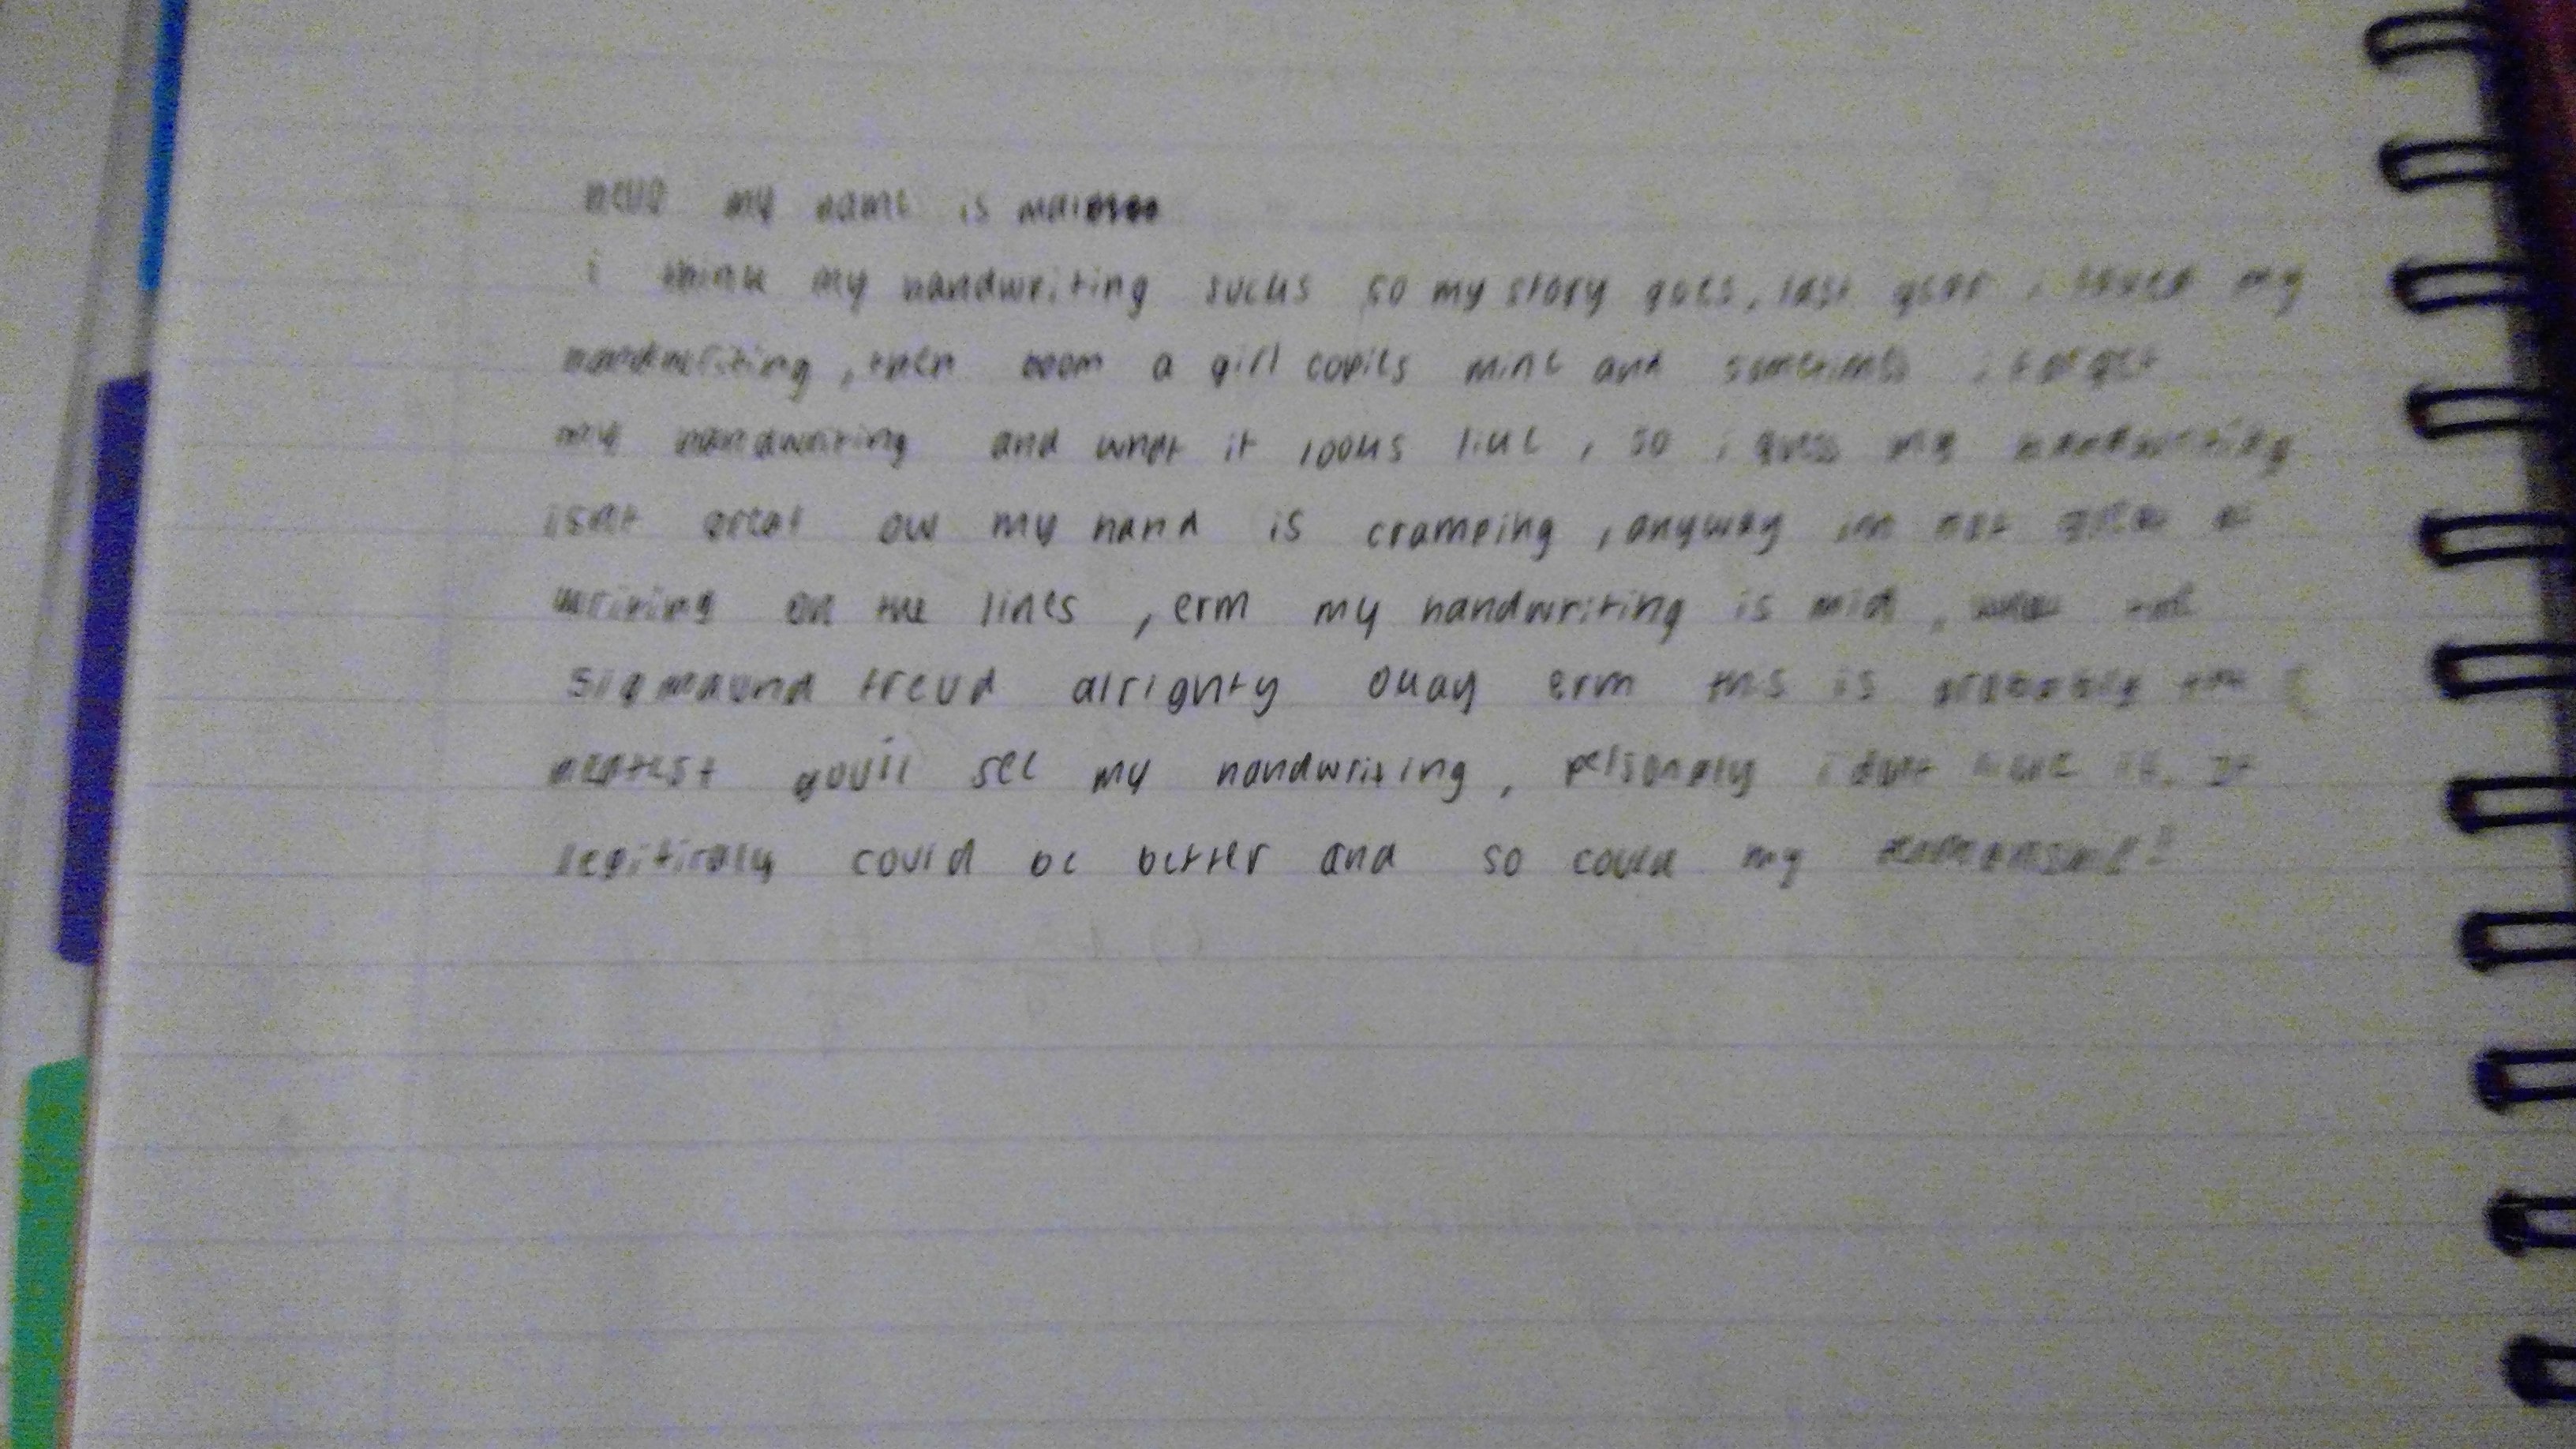 hello my name is
i think my handwriting sucks so my story goes, last year i loved my
handwriting, then boom a girl copies mine and sometimes i forget
my handwriting and what it looks like, so i guess my handwriting
isnt great ow my hand is cramping, anyway im not
writing on the lines, erm my handwriting is mid, the
sigmaund freud alrighty okay erm ths is probably the
neatest you'll see my handwriting, i dont like it. It
could be better and so could my